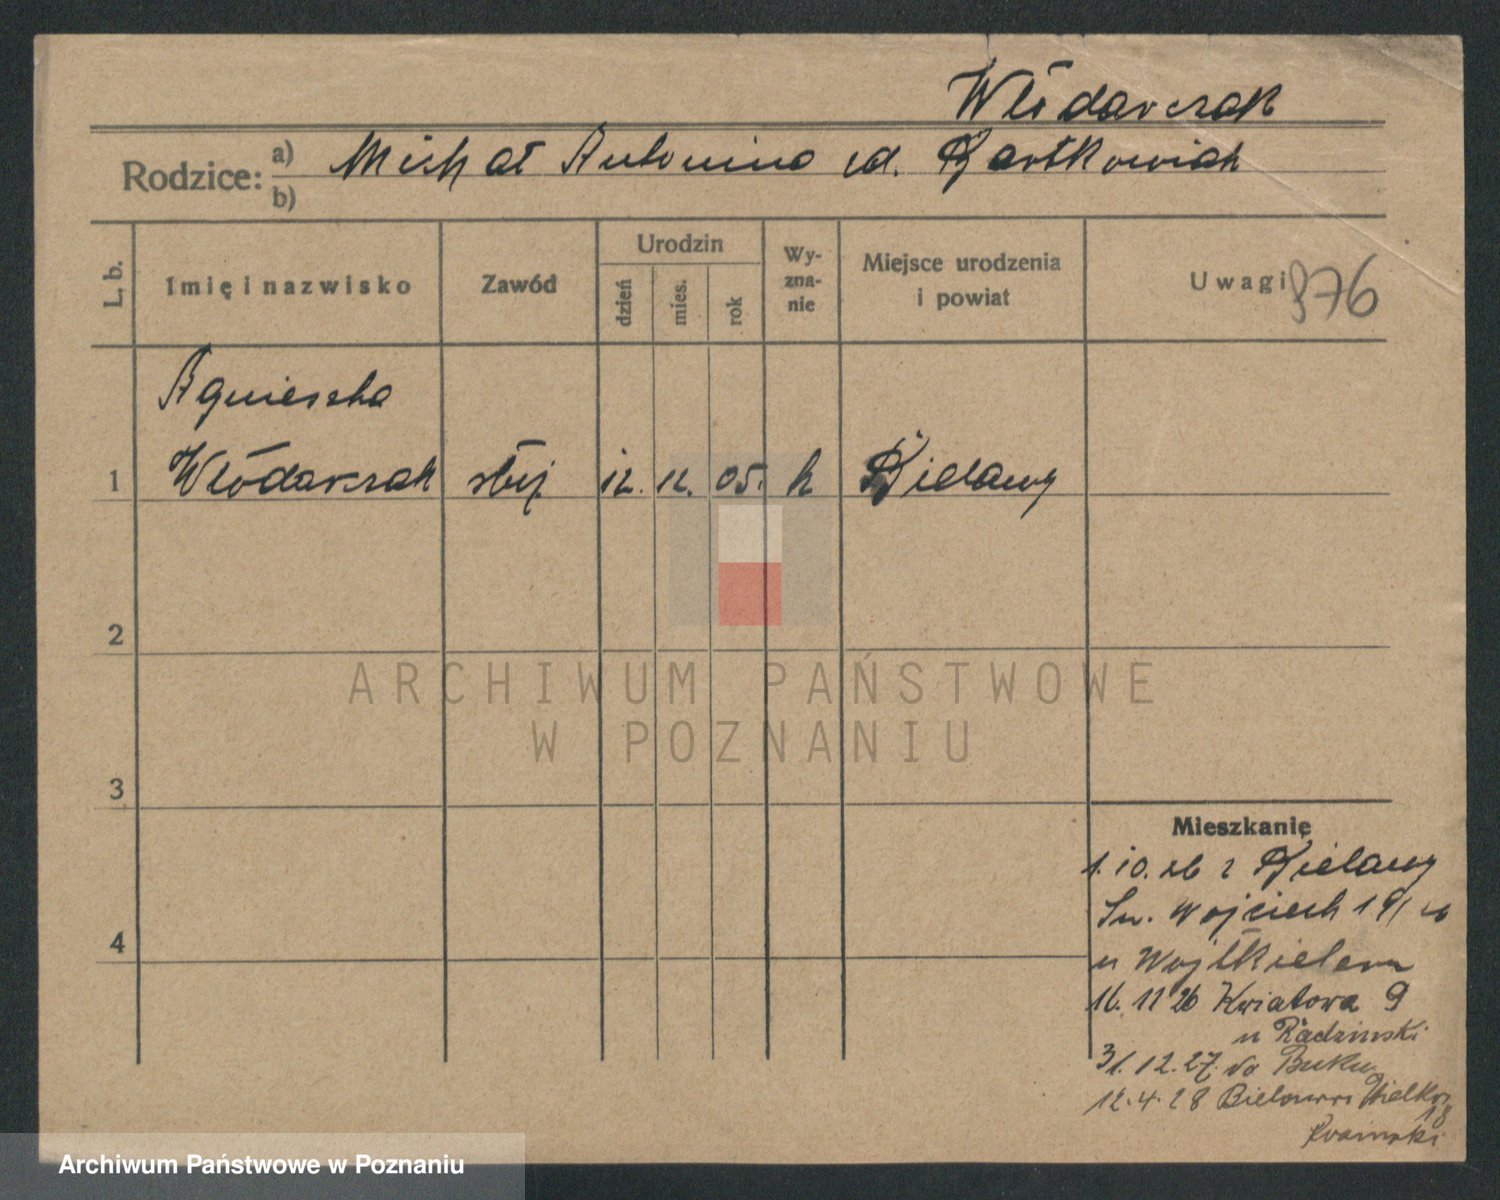 Włodarczak
Rodzice: a) Michał Antonina zd. Bartkowiak
b)
L. b.
Imię i nazwisko
Zawód
Urodzin
dzień
mies.
rok
Wy-
zna-
nie
Miejsce urodzenia
i powiat
Uwagi 976
Agnieszka
1 Włódarczak służ 12. 12. 05. k Bielawy
2
3
4
Mieszkanie
1. 10. 26 z Bielawy
Św. Wojciech 19/
u
16. 11 26 Kwiatowa 9
u Radzinski
31. 12. 27. do Buku
12. 4. 28
18
ARCHIWUM PAŃSTWOWE
W POZNANIU
Archiwum Państwowe w Poznaniu